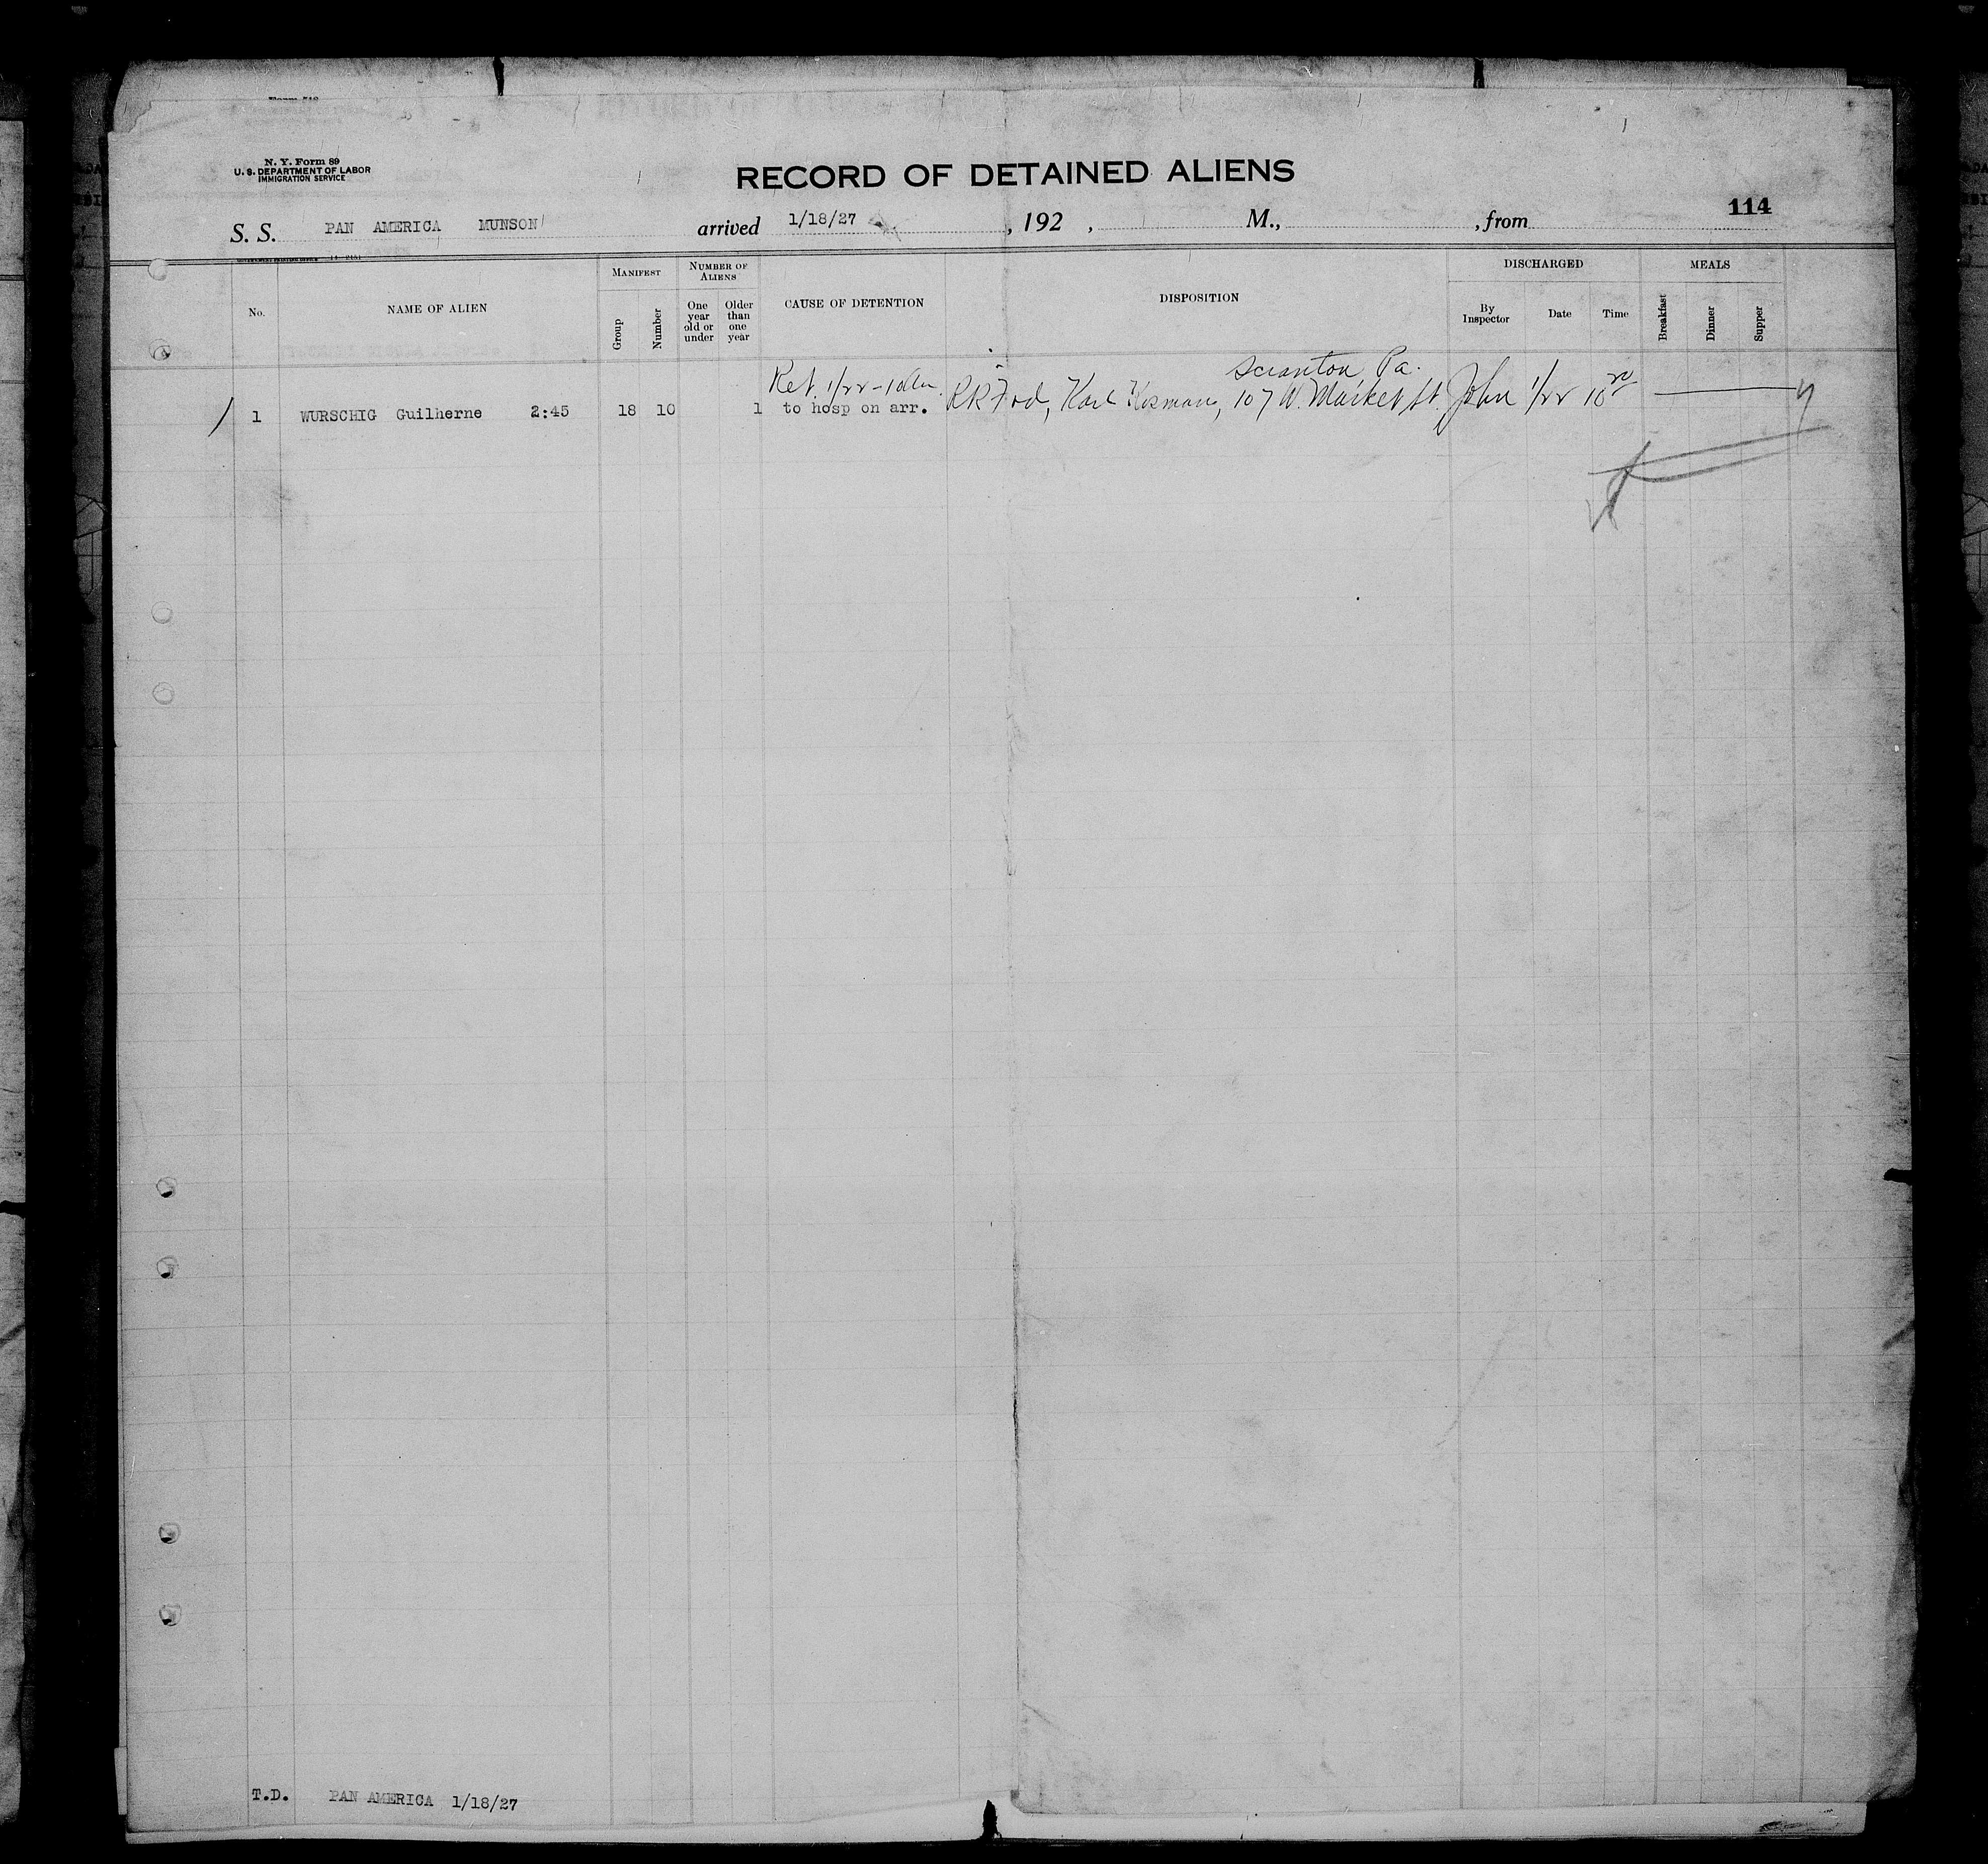 N. Y. Form 89
U. S. DEPARTMENT OF LABOR
IMMIGRATION SERVICE
RECORD OF DETAINED ALIENS
114
S. S. PAN AMERICA MUNSON arrived 1/18/27, 192 , M., , from
GOVERNMENT PRINTING OFFICE
No. NAME OF ALIEN MANIFEST NUMBER OF ALIENS CAUSE OF DETENTION DISPOSITION DISCHARGED MEALS
Group Number One year old or under Older than one year By Inspector Date Time Breakfast Dinner Supper
Ret. 1/22 - Scranton Pa.
1 WURSCHIG Guilherne 2:45 18 10 1 to hosp on arr. RR Karl 107 W. Market St. John 1/22
T.D. PAN AMERICA 1/18/27